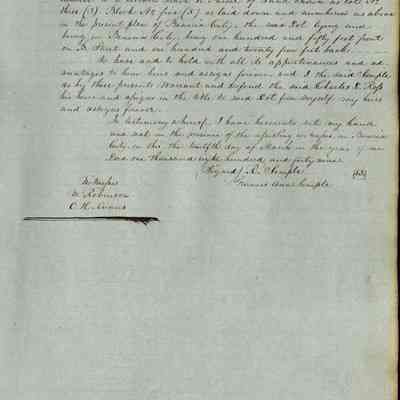 three (3) Block No five (5) as laid down and numbered as above
in the present plan of Benicia City, the said Lot lying and
being in Benicia City, being one hundred and fifty feet front
on Street and one hundred and twenty five feet back.
To have and to hold with all its appurtenances and ad-
vantages to him heirs and assigns forever. And I the said Semple,
do by these presents Warrant and defend the said Charles L. Ross
his heirs and assigns in the title to said Lot from myself my heirs
and assigns forever.
In testimony whereof, I have hereunto set my hand
and seal in the presence of the witnesses in Benicia
City on this the twelfth day of March in the year of our
Lord one thousand eight hundred and forty nine.
(Signed) R. Semple
Frances Ann Semple
W. Robinson
C. H. Evans